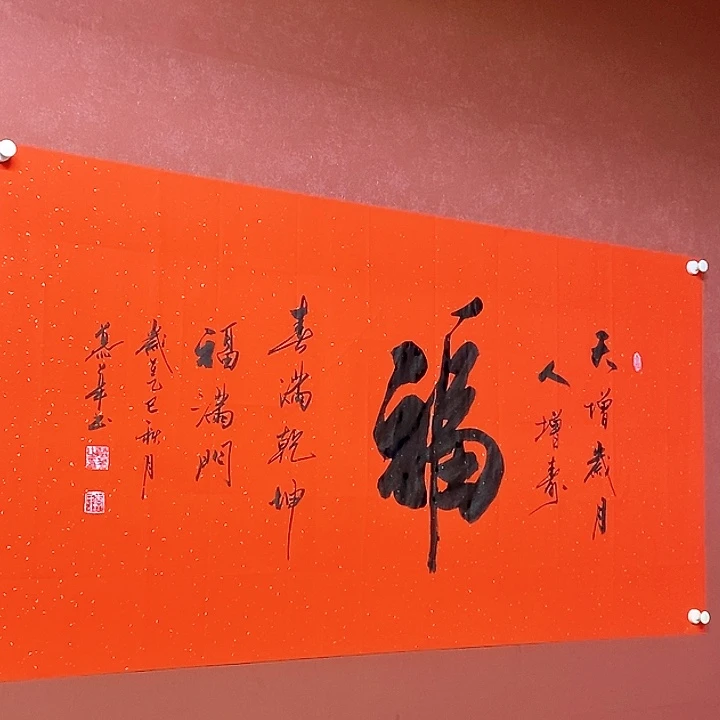 天增歲月
人增壽
福
春滿乾坤
福滿門
歲在乙巳秋月